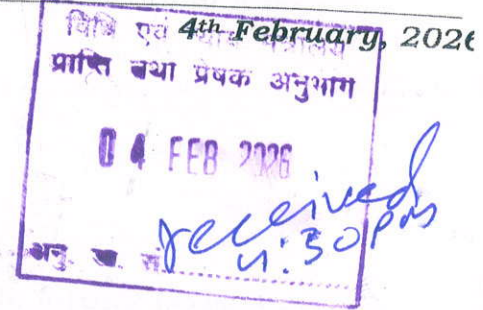 4th February, 2026
विधि एवं न्याय मंत्रालय
प्राप्ति तथा प्रेषक अनुभाग
04 FEB 2026
received
4:30 pm
अनु. ख. सं.